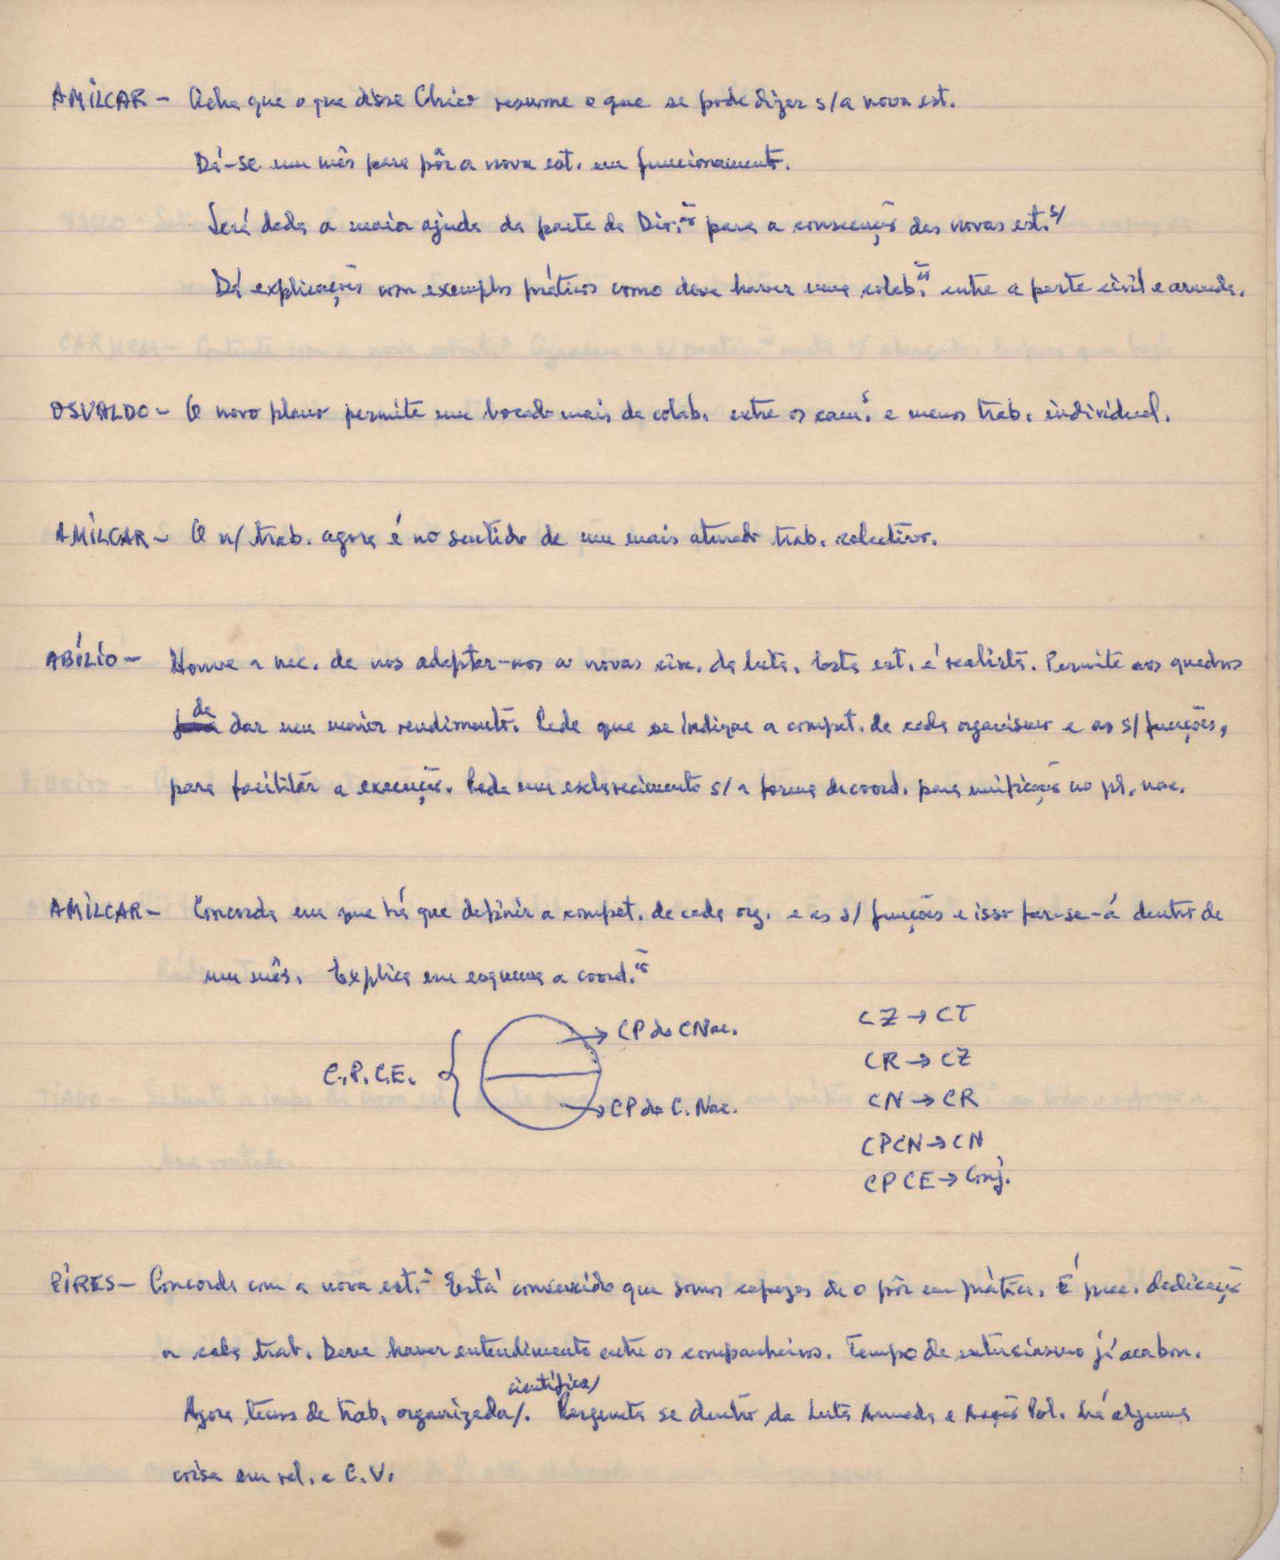 AMÍLCAR - Acha que o que disse Chico resume o que se pode dizer s/ a nova est.
Dá-se um mês para pôr a nova est. em funcionamento.
Será dada a maior ajuda da parte da Dir.ão para a consecução das novas est.s/
Dá explicações com exemplos práticos como deve haver uma colab.ão entre a parte civil e armada.
OSVALDO - O novo plano permite um bocado mais de colab. entre os cam.s e menos trab. individual.
AMÍLCAR - O n/ trab. agora é no sentido de um mais aturado trab. colectivo.
ABÍLIO - Houve a nec. de nos adaptar-nos a novas circ. da luta. Esta est. é realista. Permite aos quadros
de dar um maior rendimento. Pede que se indique a compet. de cada organismo e as s/ funções,
para facilitar a execução. Pede um esclarecimento s/ a forma de coord. para unificação no pl. nac.
AMÍLCAR - Concorda em que há que definir a compet. de cada org. e as s/ funções e isso far-se-á dentro de
um mês. Explica em esquema a coord.ão
C.P.C.E. { → CP do CNac.
→ CP do C. Nac.
CZ → CT
CR → CZ
CN → CR
CPCN → CN
CPCE → Conj.
PIRES - Concorda com a nova est.ª Está convencido que somos capazes de o pôr em prática. É prec. dedicação
a cada trab. Deve haver entendimento entre os companheiros. Tempo de entusiasmo já acabou.
científica/
Agora temos de trab. organizada/. Pergunta se dentro da Luta Armada e Acção Pol. há alguma
coisa em rel. a C.V.